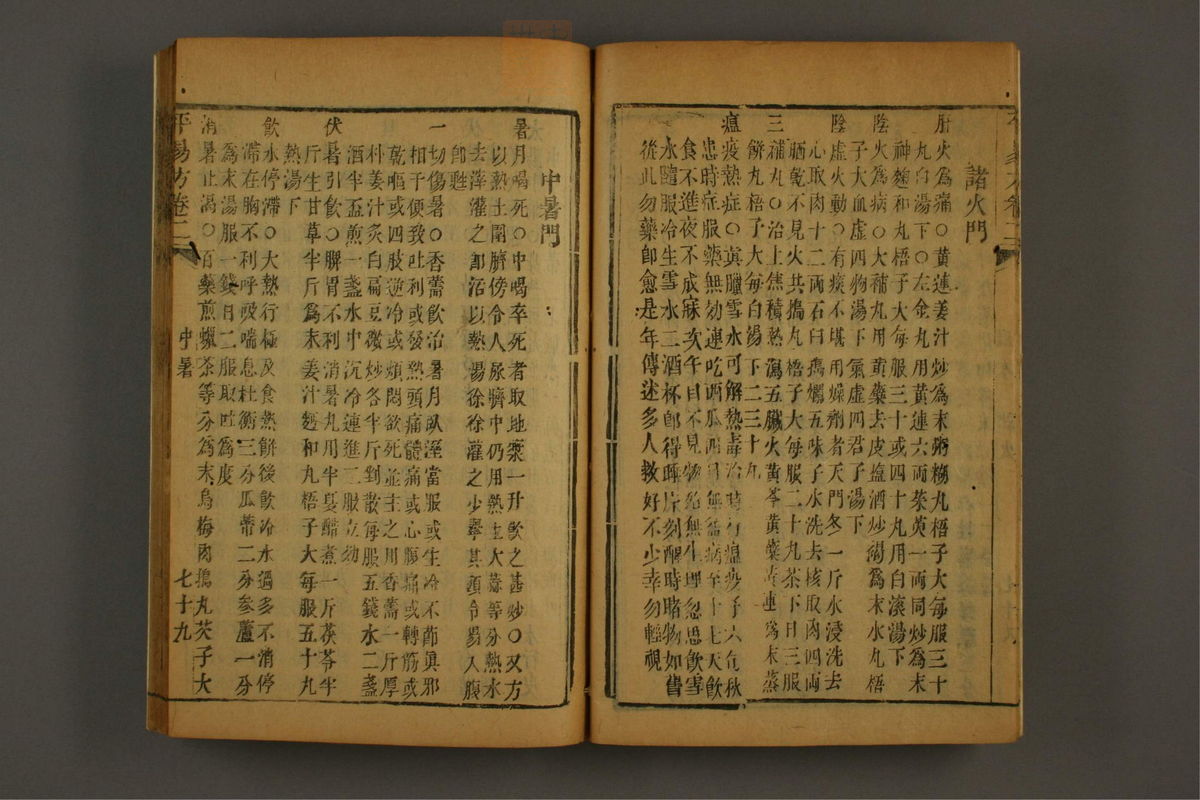 諸火門
肝火為痛○黃連姜汁炒為末粥糊丸梧子大每服三十
丸白湯下○左金丸用黃連六兩茱萸一兩同炒為末
神麯和丸梧子大每服三十或四十丸用白滾湯下
陰火為病○大補丸用黃蘗去皮塩酒炒褐為末水丸梧
子大血虛四物湯下氣虛四君子湯下
陰虛火動○有痰不堪用燥劑者天門冬一斤水浸洗去
心取肉十二兩石臼搗爛五味子水洗去核取肉四兩
晒乾不見火共搗丸梧子大每服二十丸茶下日三服
三補丸○治上焦積熱瀉五臟火黃芩黃蘗黃連為末蒸
餅丸梧子大每白湯下二三十丸
瘟疫熱症○真臘雪水可解熱毒治時行瘟疫予六旬秋
患時症服藥無効連吃西瓜四月無益病至十七天飲
食不進夜不成寐次午目不見物絶無生理忽思飲雪
水隨服冷生雪水二酒杯卽得睡片刻醒時賭物如舊
從此勿藥卽愈是年傳迷多人救好不少幸勿輕視
中暑門
暑月暍死○中暍卒死者取地漿一升飲之甚妙○又方
以熱土圍臍傍令人尿臍中仍用熱土大蒜等分熱水
去滓灌之卽活以熱湯徐徐灌之少舉其頭令易入腹
卽甦
一切傷暑○香薷飲治暑月臥溼當服或生冷不節真邪
相干便致吐利或發熱頭痛體痛或心腹痛或轉筋或
乾嘔或四肢逆冷或煩悶欲死並主之用香薷一斤厚
朴姜汁炙白扁豆微炒各半斤剉散每服五錢水二盞
酒半盃煎一盞水中沉冷連進二服立効
伏暑引飲○脾胃不利消暑丸用半夏醋煮一斤茯苓半
斤生甘草半斤為末姜汁麪和丸梧子大每服五十丸
熱湯下
飲水停滯○大熱行極及食熱餅後飲冷水過多不消停
滯在胸不利呼吸喘息杜衡三分瓜蒂二分參蘆一分
為末湯服一錢日二服取吐為度
消暑止渴○百藥煎蠟茶等分為末烏梅肉搗丸芡子大
平易方卷二 中暑 七十九